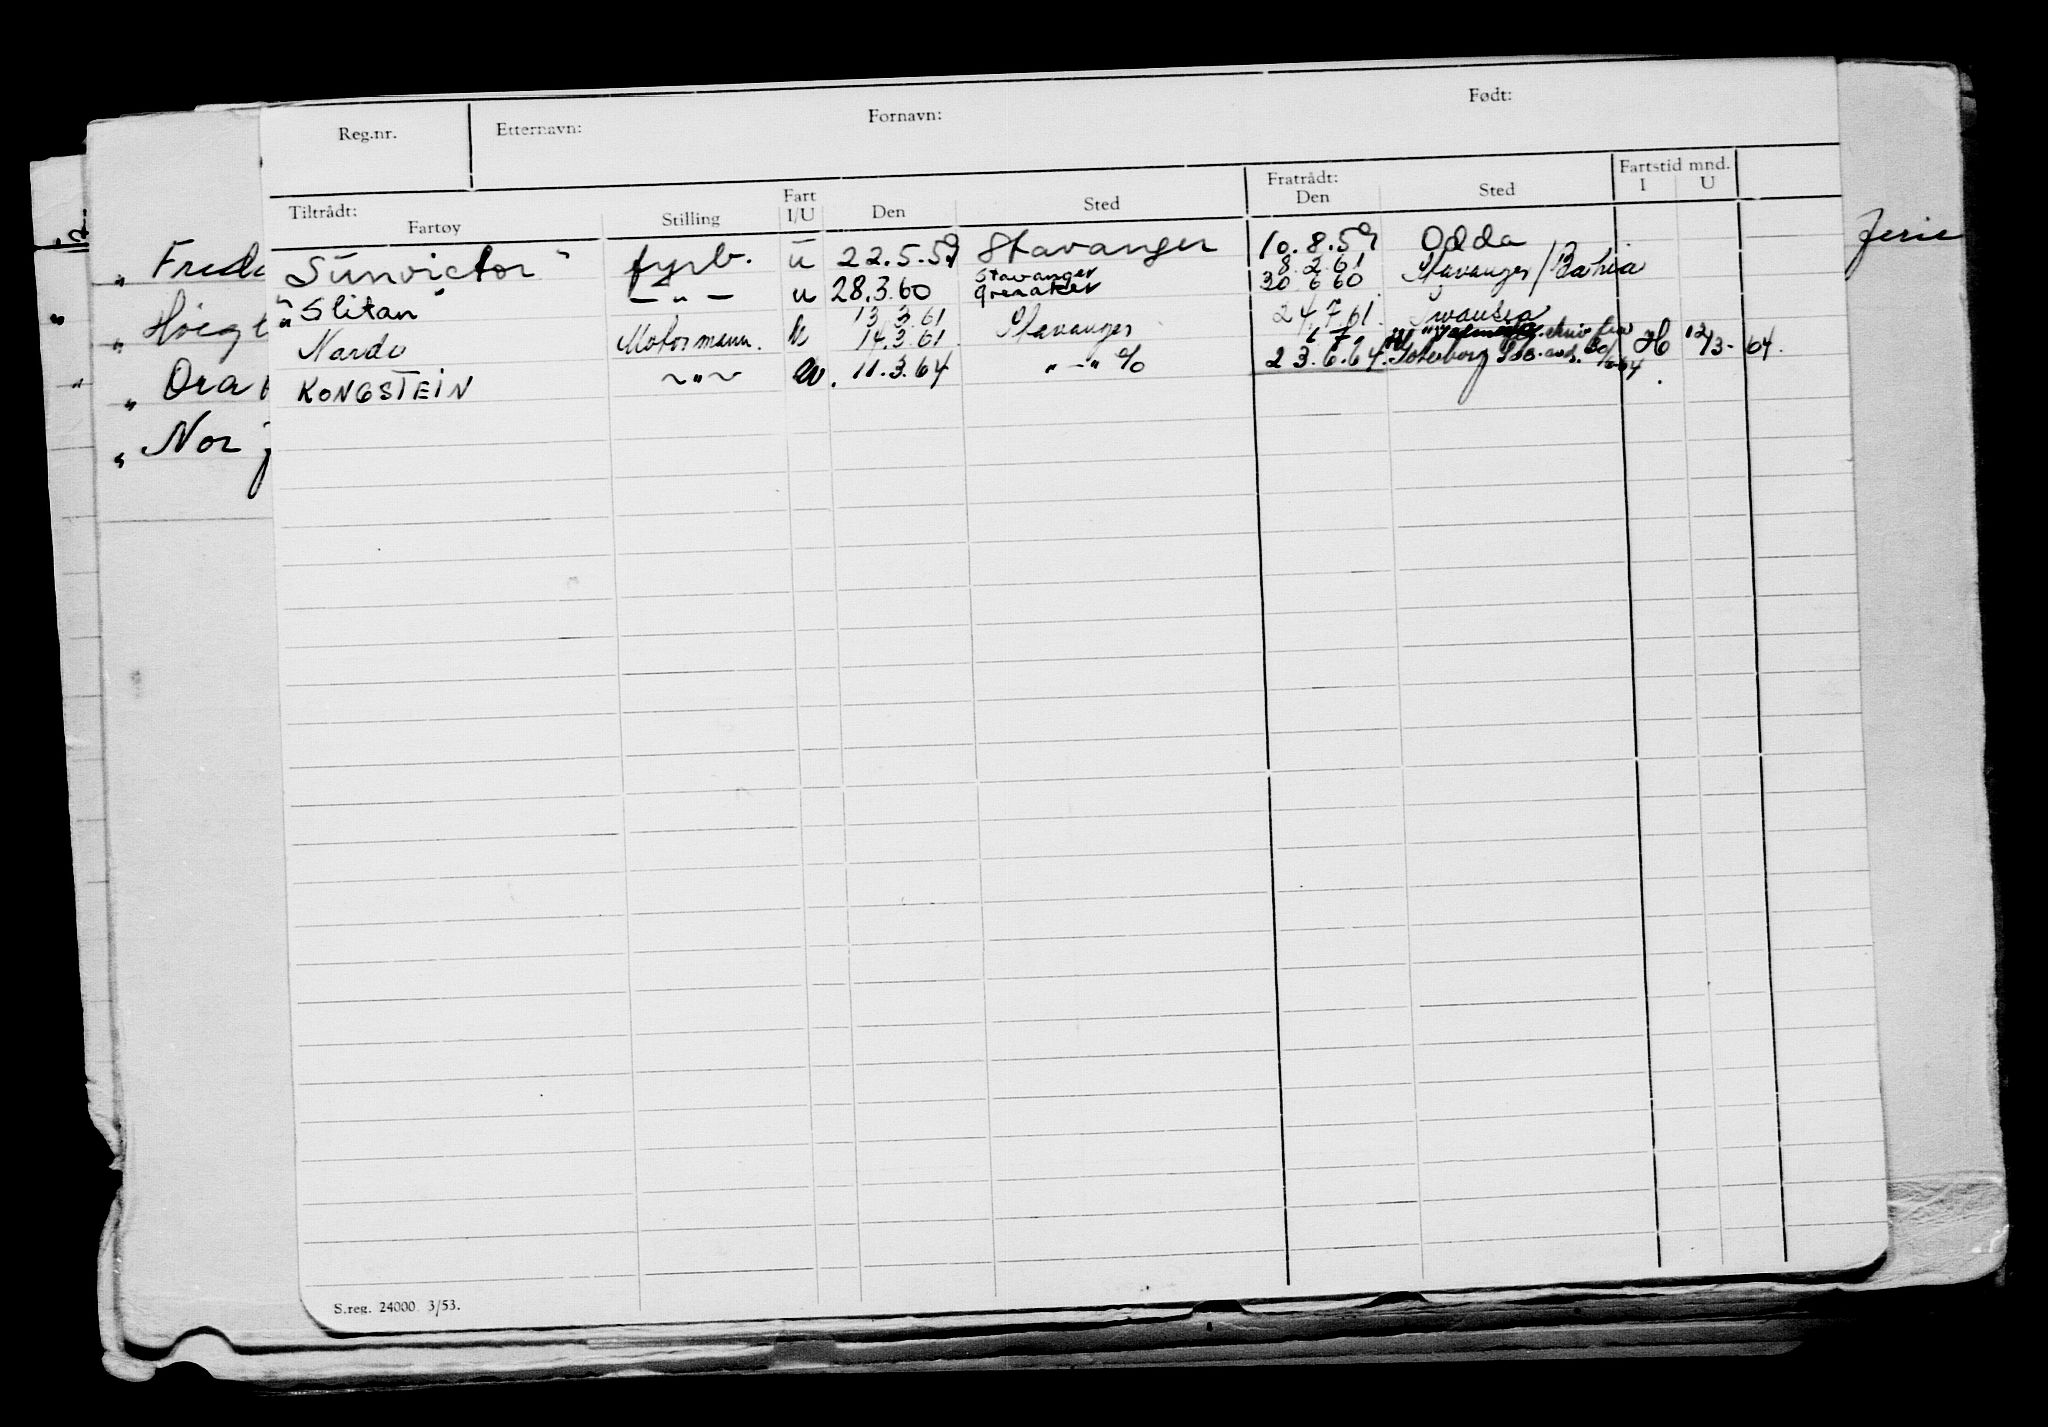 Reg.nr. Etternavn: Fornavn: Født:
Tiltrådt: Fratrådt: Fartstid mnd.
Fartøy Stilling Fart I/U Den Sted Den Sted I U
Sunvictor" fyrb. u 22.5.59 Stavanger 10.8.59 Odda
8.2.61
"Slitan" — " — u 28.3.60 Stavanger 30 6 60 Stavanger/Bahia
13 3.61 24.7.61. Swansea
" Nardo Motormann. u 14.3.61 Stavanger
KONGSTEIN ~ " ~ u. 11.3.64 " - " % 23.6.64. Gøteborg H 12/3-64.
" Høegt
" Ora
" Nor
Ferie
S.reg. 24000 3/53.